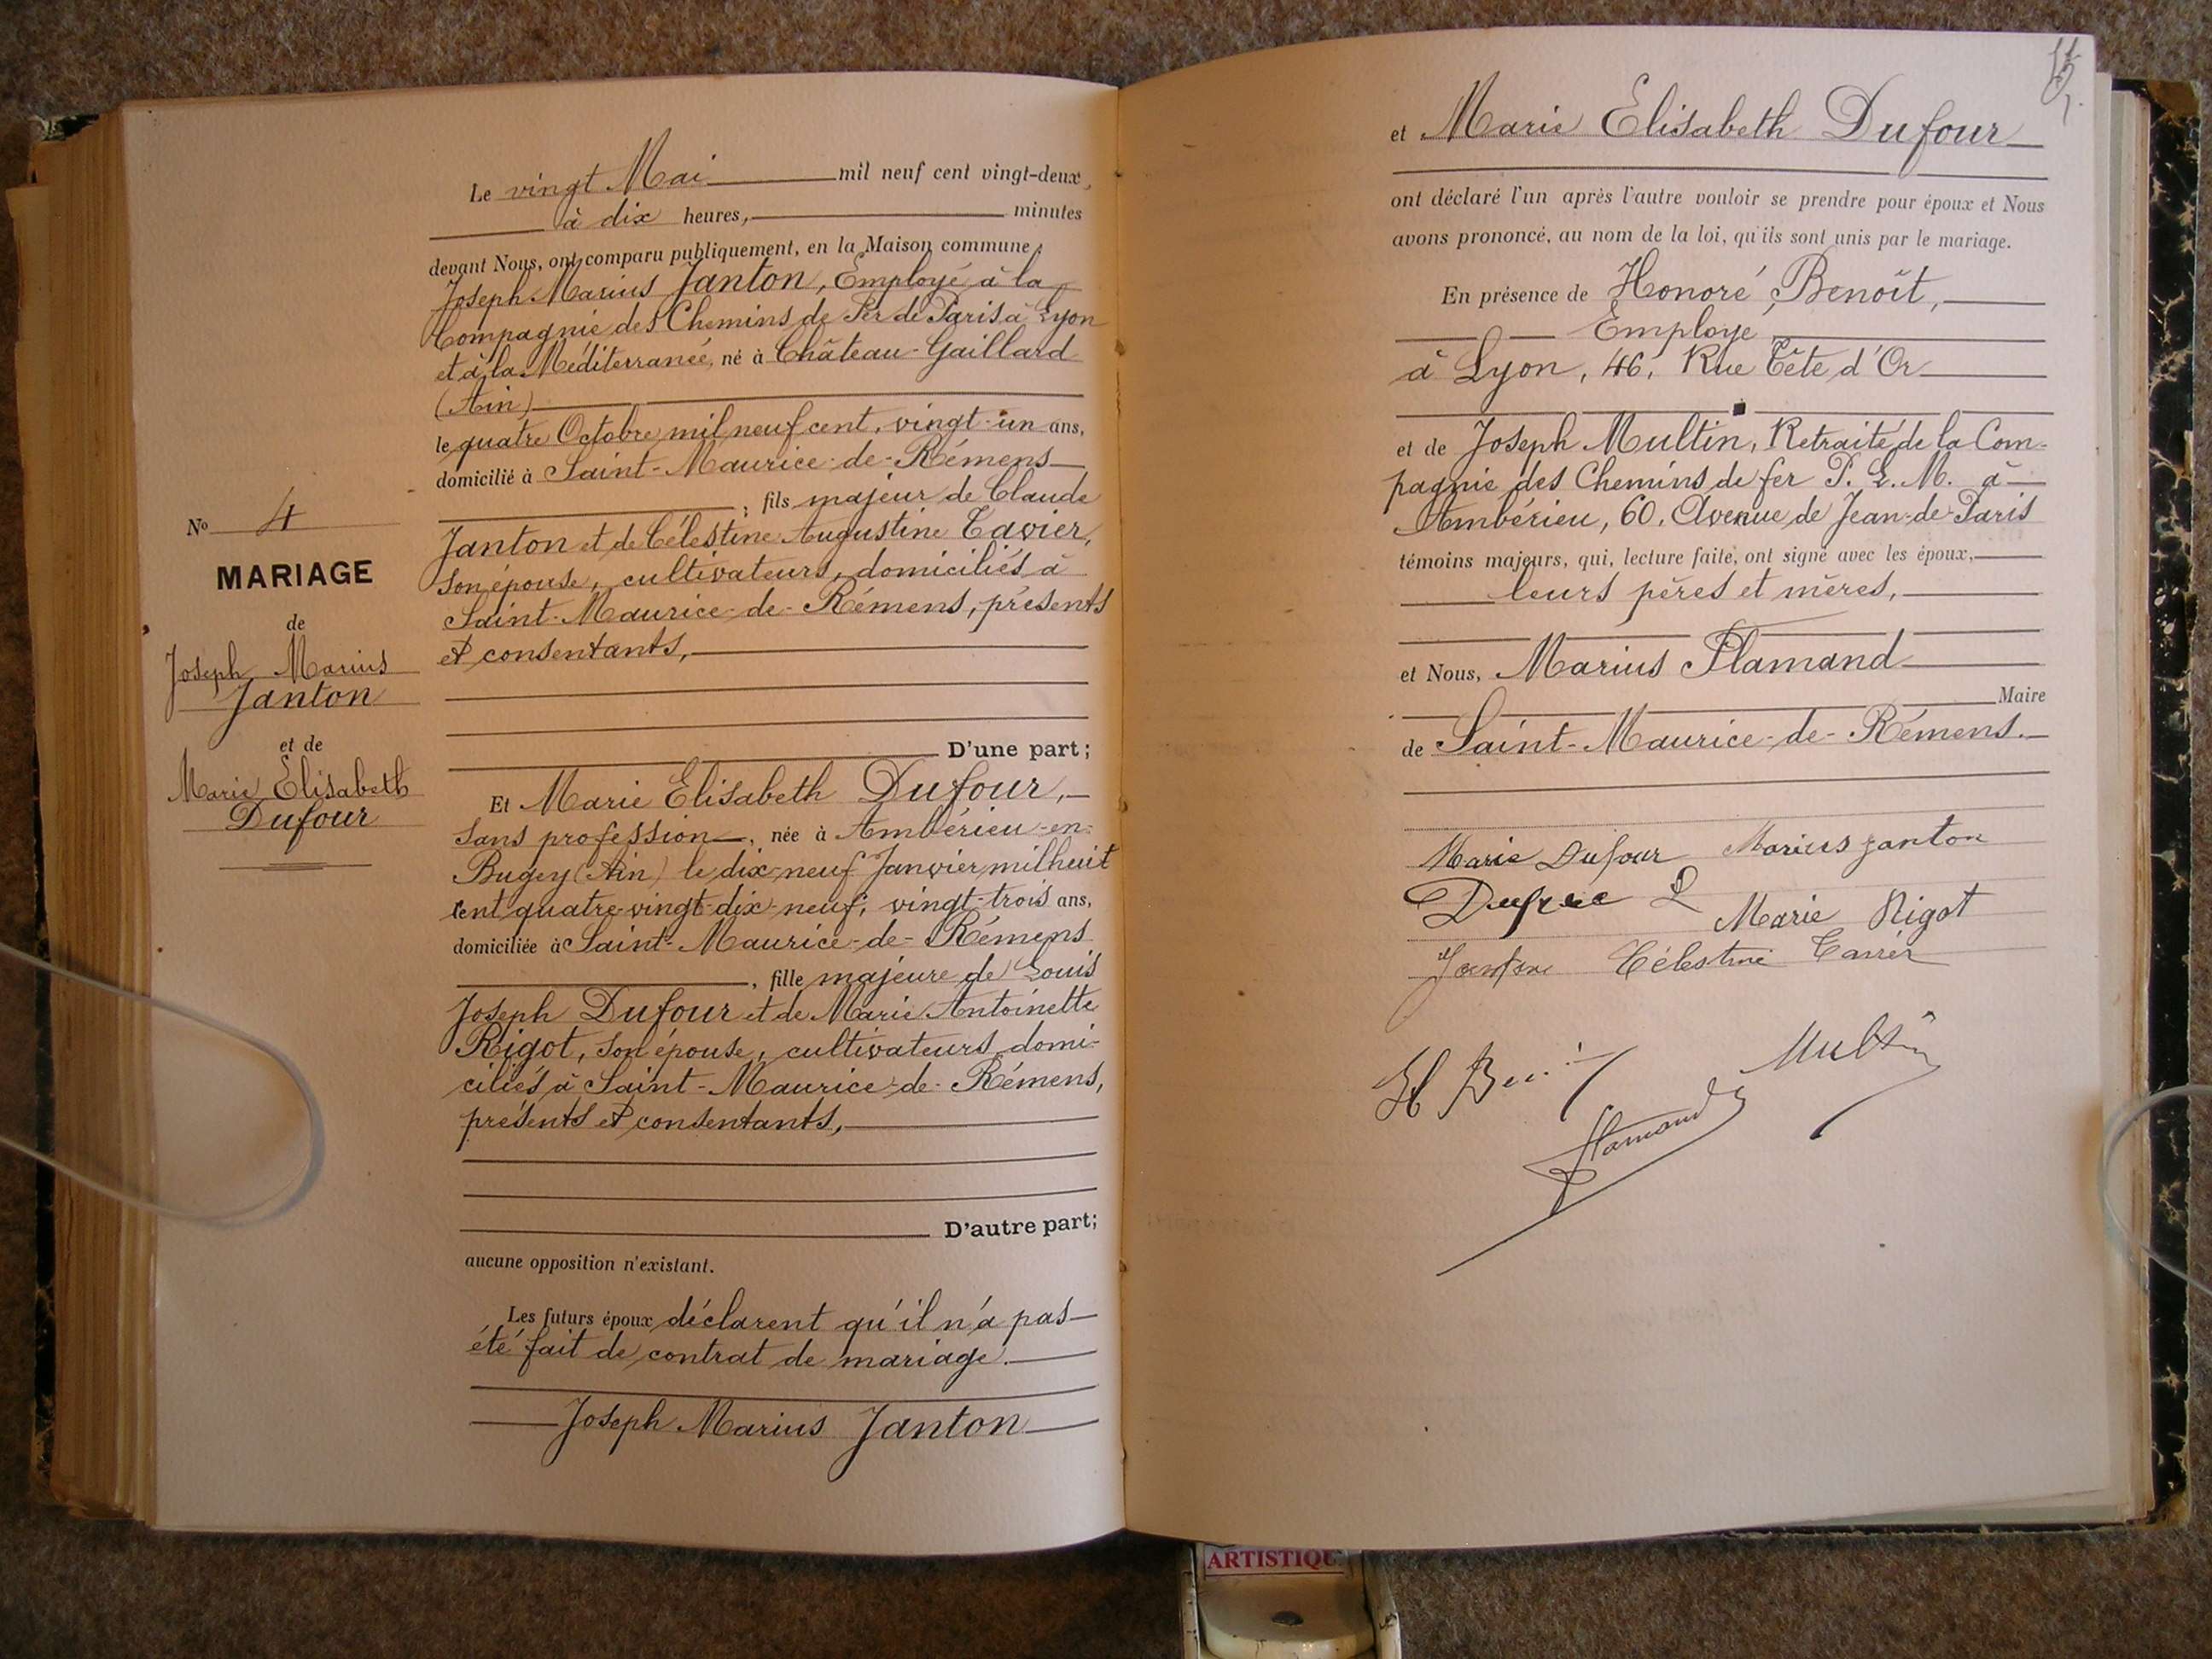 Le vingt Mai mil neuf cent vingt-deux,
à dix heures, minutes
devant Nous, ont comparu publiquement, en la Maison commune,
Joseph Marius Janton, Employé à la
Compagnie des Chemins de Fer de Paris à Lyon
et à la Méditerranée, né à Château-Gaillard
(Ain)
le quatre Octobre mil neuf cent, vingt-un ans,
domicilié à Saint-Maurice-de-Rémens
, fils majeur de Claude
Janton et de Célestine Augustine Tavier,
son épouse, cultivateurs, domiciliés à
Saint-Maurice-de-Rémens, présents
et consentants,
D'une part;
Et Marie Elisabeth Dufour,
sans profession, née à Ambérieu-en-
Bugey (Ain) le dix-neuf Janvier mil huit
cent quatre-vingt-dix-neuf; vingt-trois ans,
domiciliée à Saint-Maurice-de-Rémens
, fille majeure de Louis
Joseph Dufour et de Marie Antoinette
Rigot, son épouse, cultivateurs, domi-
ciliés à Saint-Maurice-de-Rémens,
présents et consentants,
D'autre part;
aucune opposition n'existant.
Les futurs époux déclarent qu'il n'a pas
été fait de contrat de mariage.
Joseph Marius Janton
No 4
MARIAGE
de
Joseph Marius
Janton
et de
Marie Elisabeth
Dufour
et Marie Elisabeth Dufour
ont déclaré l'un après l'autre vouloir se prendre pour époux et Nous
avons prononcé, au nom de la loi, qu'ils sont unis par le mariage.
En présence de Honoré Benoît,
Employé
à Lyon, 46, Rue Tête d'Or
et de Joseph Multin, Retraité de la Com-
pagnie des Chemins de fer P. L. M. à
Ambérieu, 60, Avenue de Jean-de-Paris
témoins majeurs, qui, lecture faite, ont signé avec les époux,
leurs pères et mères,
et Nous, Marius Flamand
Maire
de Saint-Maurice-de-Rémens.
Marie Dufour Marius Janton
Marie Rigot
Janton Célestine Tavier
H Multin
Flamand
ARTISTIQU